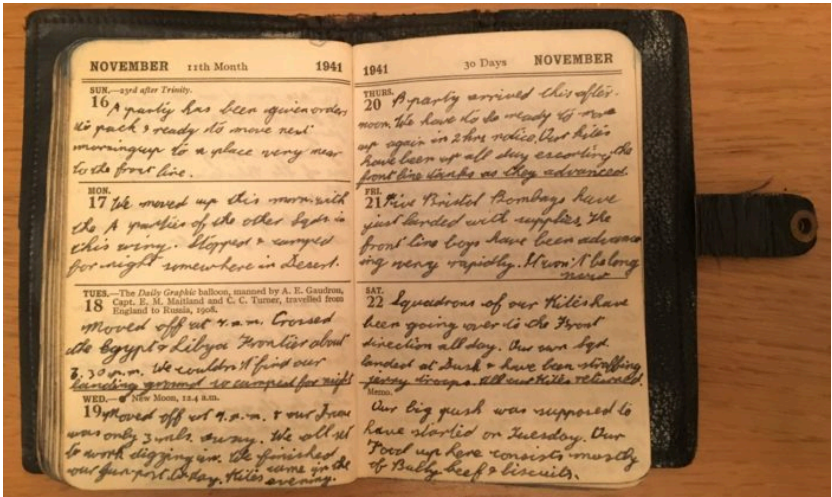 NOVEMBER 11th Month 1941
SUN.—23rd after Trinity.
16 A party has been given orders
to pack & ready to move next
morning up to a place very near
to the front line.
MON.
17 We moved up this morn. with
the A parties of the other Sqds in
this wing. Stopped & camped
for night somewhere in Desert.
TUES.—The Daily Graphic balloon, manned by A. E. Gaudron,
Capt. E. M. Maitland and C. C. Turner, travelled from
England to Russia, 1908.
18 Moved off at 7.a.m. Crossed
the Egypt & Libya Frontier about
3.30 p.m. We couldn't find our
landing ground so camped for night
WED.—● New Moon, 12.4 a.m.
19 Moved off at 7.a.m. & our
was only 3 mls. away. We all set
to work digging in. We finished
our gun-post to-day. Kites came in the
evening.
1941 30 Days NOVEMBER
THURS.
20 B party arrived this after-
noon. We have to be ready to move
up again in 2 hrs notice. Our Kites
have been up all day escorting the
front line tanks as they advanced.
FRI.
21 Five Bristol Bombays have
just landed with supplies. The
front line boys have been advanc
ing very rapidly. It won't be long
now
SAT.
22 Squadrons of our Kites have
been going over to the Front
direction all day. Our own Sqd.
landed at Dusk & have been straffing
jerry troops. All our Kites returned.
Memo.
Our big push was supposed to
have started on Tuesday. Our
Food up here consists mostly
of Bully beef & biscuits.